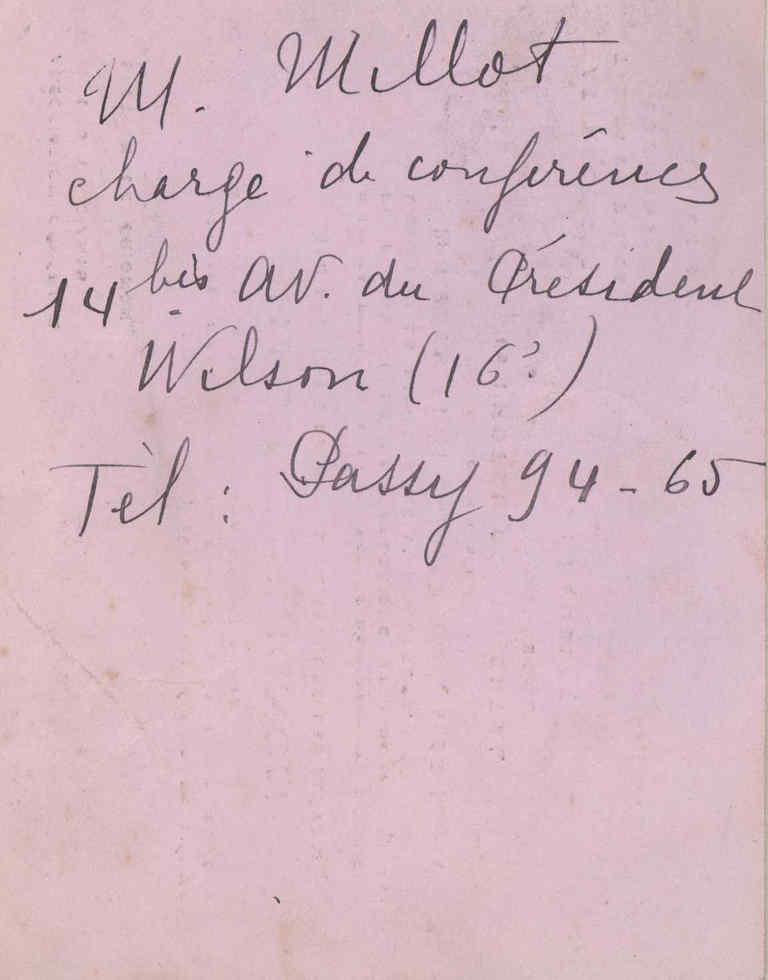 M. Millot
chargé de conférences
14 bis av. du Président
Wilson (16e)
Tél : Passy 94-65